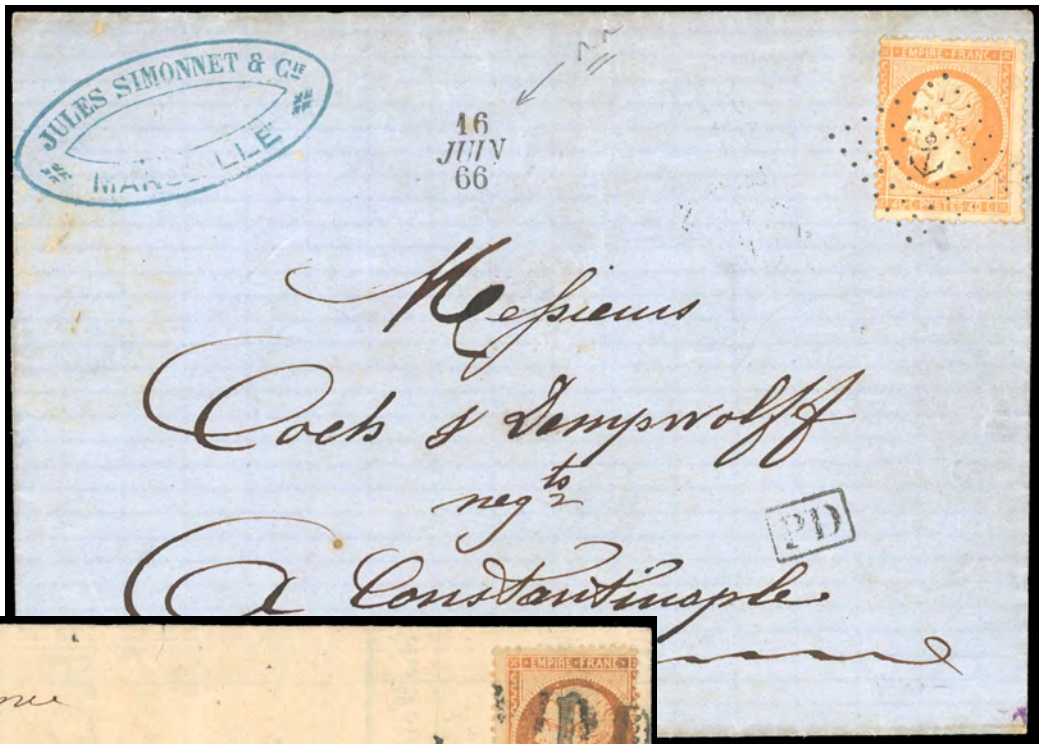 JULES SIMONNET & CIE
MARSEILLE
16
JUIN
66
EMPIRE FRANC
40 C POSTES 40 C
Messieurs
Coeb & Dempwolff
negts
PD
A Constantinople
EMPIRE FRANC